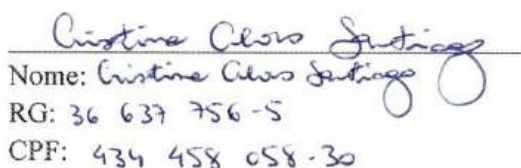 Cristina Clovs Santiago
Nome: Cristina Clovs Santiago
RG: 36 637 756-5
CPF: 434 458 058-30